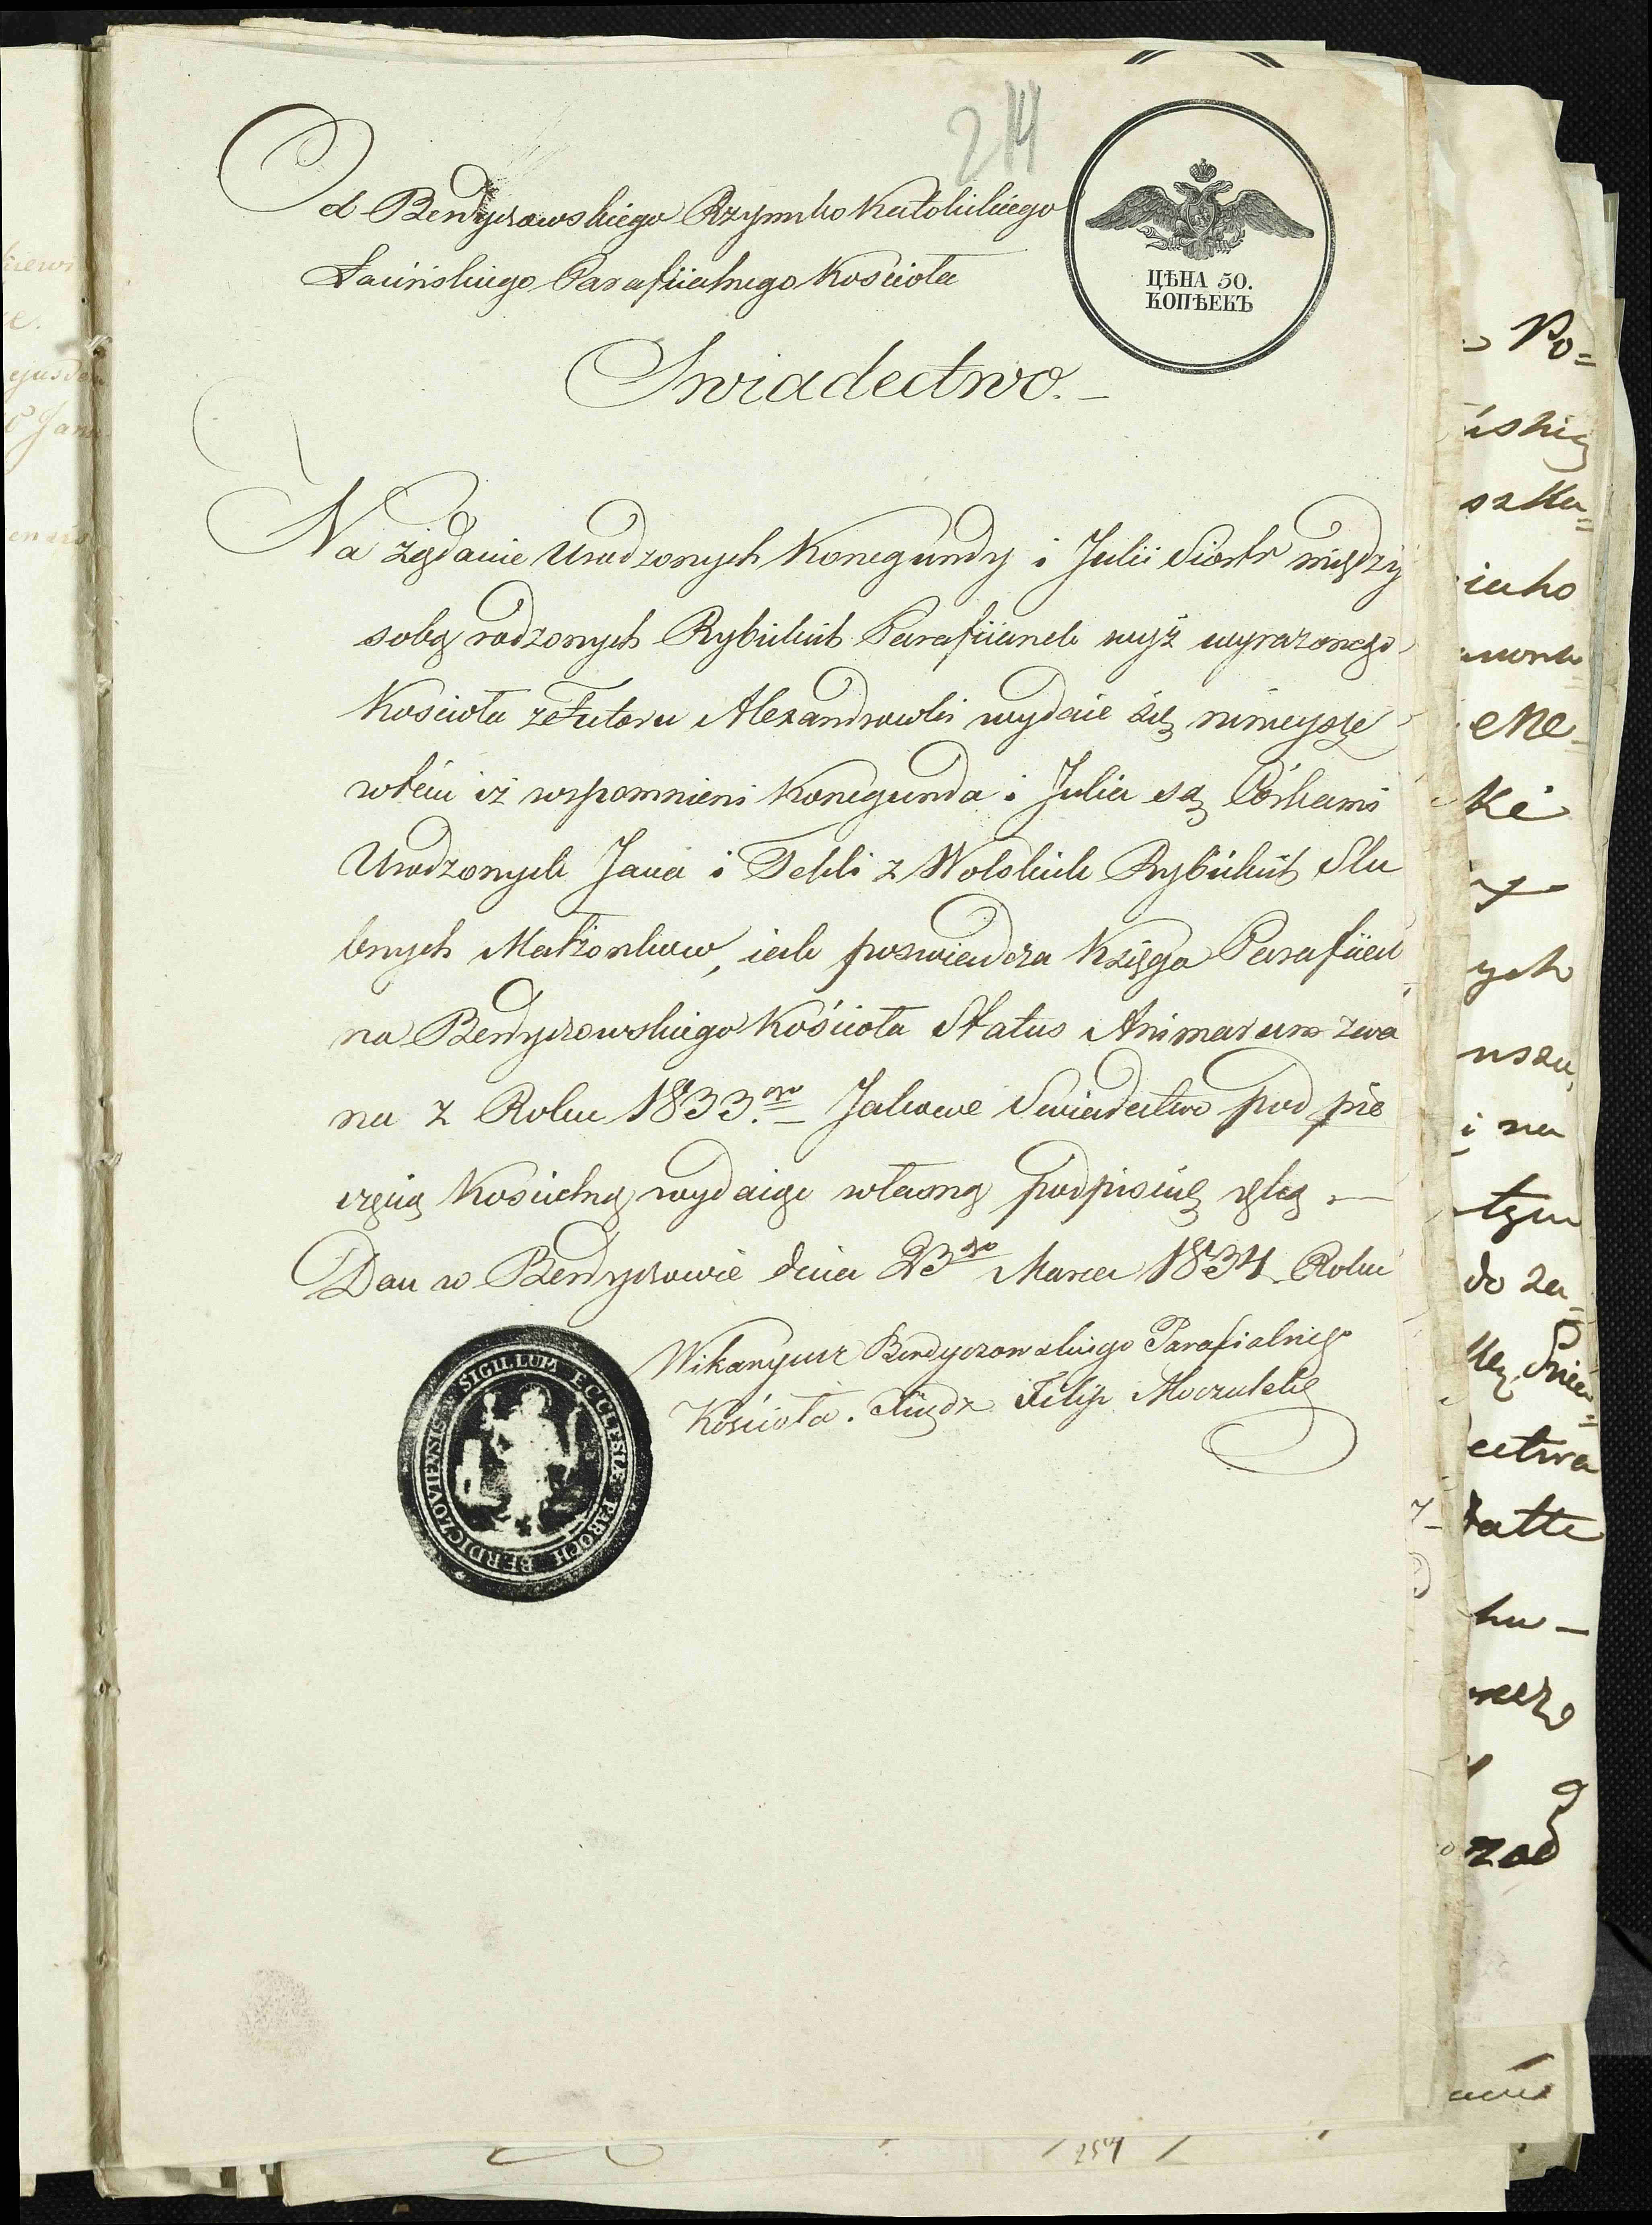 214
ЦѢНА 50.
КОПѢЕКЪ
Od Berdyczowskiego Rzymsko Katolickiego
Łacińskiego Parafiialnego Kościoła
Swiadectwo.
Na żądanie Urodzonych Konegundy i Julii Siostr między
sobą rodzonych Rybickich Parafiianek wyż wyrazonego
Koscioła Alexandrowki wydaie się ninieysze
wtém iż wspomnieni Konegunda i Julia są Córkami
Urodzonych Jana i Tekli z Wolskich Rybickich Slu
bnych Małżonkow, iak poswiadcza Księga Parafiial
na Berdyczowskiego Kościoła Status Animarum zwa
na z Roku 1833.go Jakowe Swiadectwo pod pie
częcią Koscielną wydaiąc własną podpisuię ręką.—
Dan w Berdyczowie dnia 23go Marca 1834 Roku
Wikaryusz Berdyczowskiego Parafialnego
Kościoła. Xiądz Filip Moczulski
SIGILLUM ECCLESIÆ PAROCH BERDICZOVIENSIS
Po=
uskie
szka=
iako
ene
ki
ych
nszu,
i na
tym
do za=
ectwa
ku —
rzad